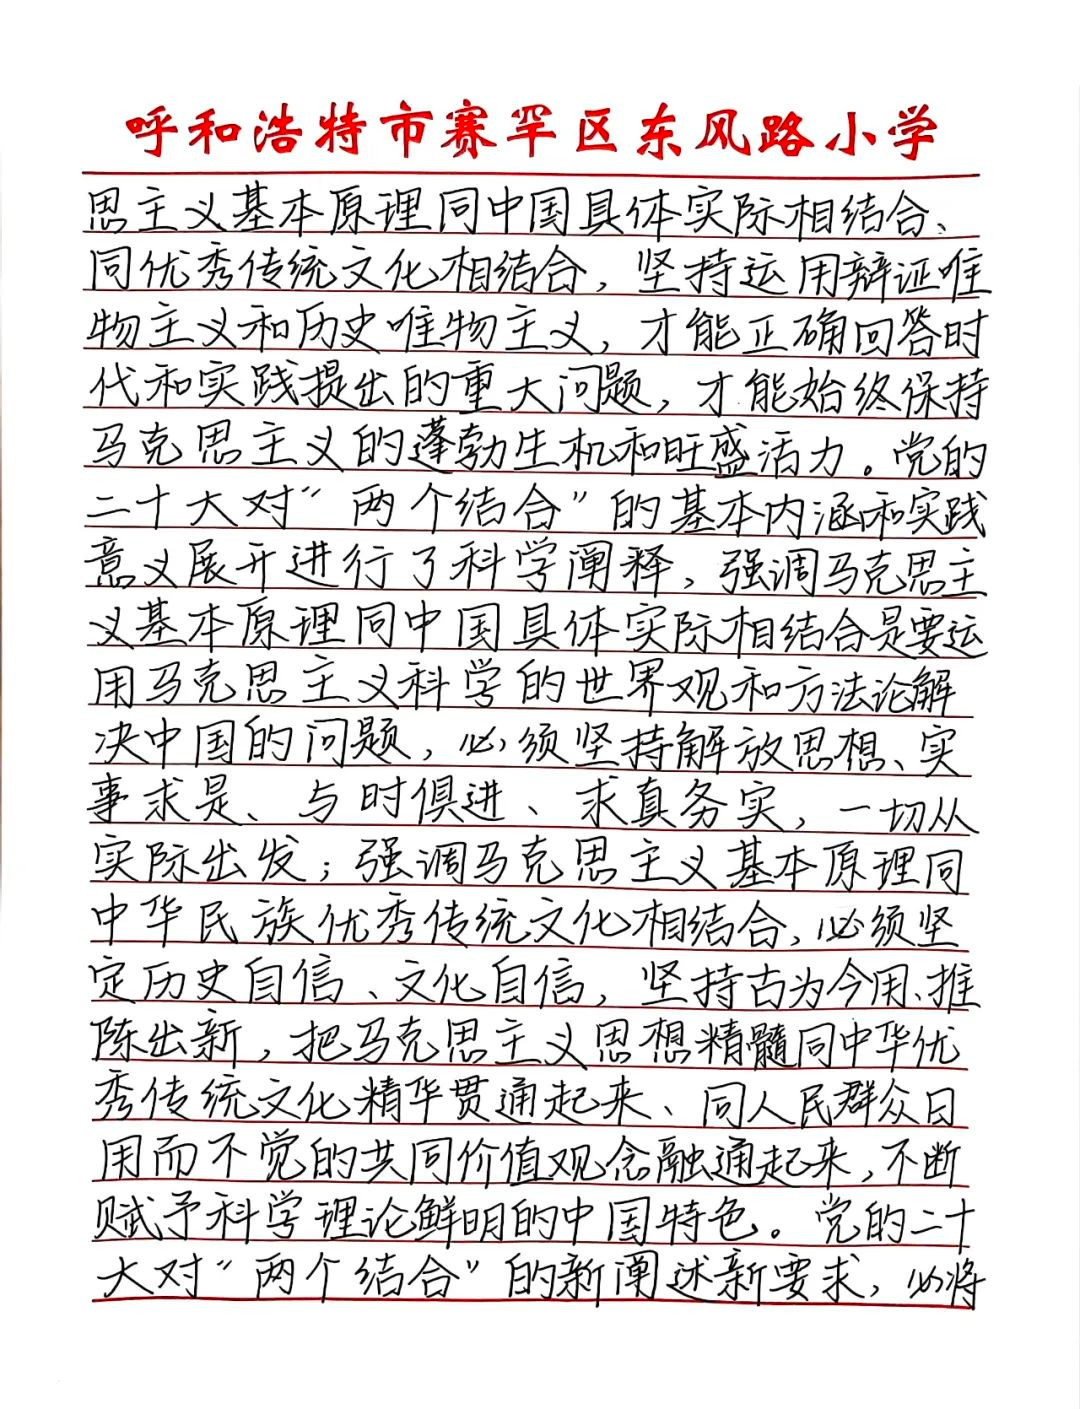 呼和浩特市赛罕区东风路小学
思主义基本原理同中国具体实际相结合、
同优秀传统文化相结合，坚持运用辩证唯
物主义和历史唯物主义，才能正确回答时
代和实践提出的重大问题，才能始终保持
马克思主义的蓬勃生机和旺盛活力。党的
二十大对“两个结合”的基本内涵和实践
意义展开进行了科学阐释，强调马克思主
义基本原理同中国具体实际相结合是要运
用马克思主义科学的世界观和方法论解
决中国的问题，必须坚持解放思想、实
事求是、与时俱进、求真务实，一切从
实际出发；强调马克思主义基本原理同
中华民族优秀传统文化相结合，必须坚
定历史自信、文化自信，坚持古为今用、推
陈出新，把马克思主义思想精髓同中华优
秀传统文化精华贯通起来、同人民群众日
用而不觉的共同价值观念融通起来，不断
赋予科学理论鲜明的中国特色。党的二十
大对“两个结合”的新阐述新要求，必将